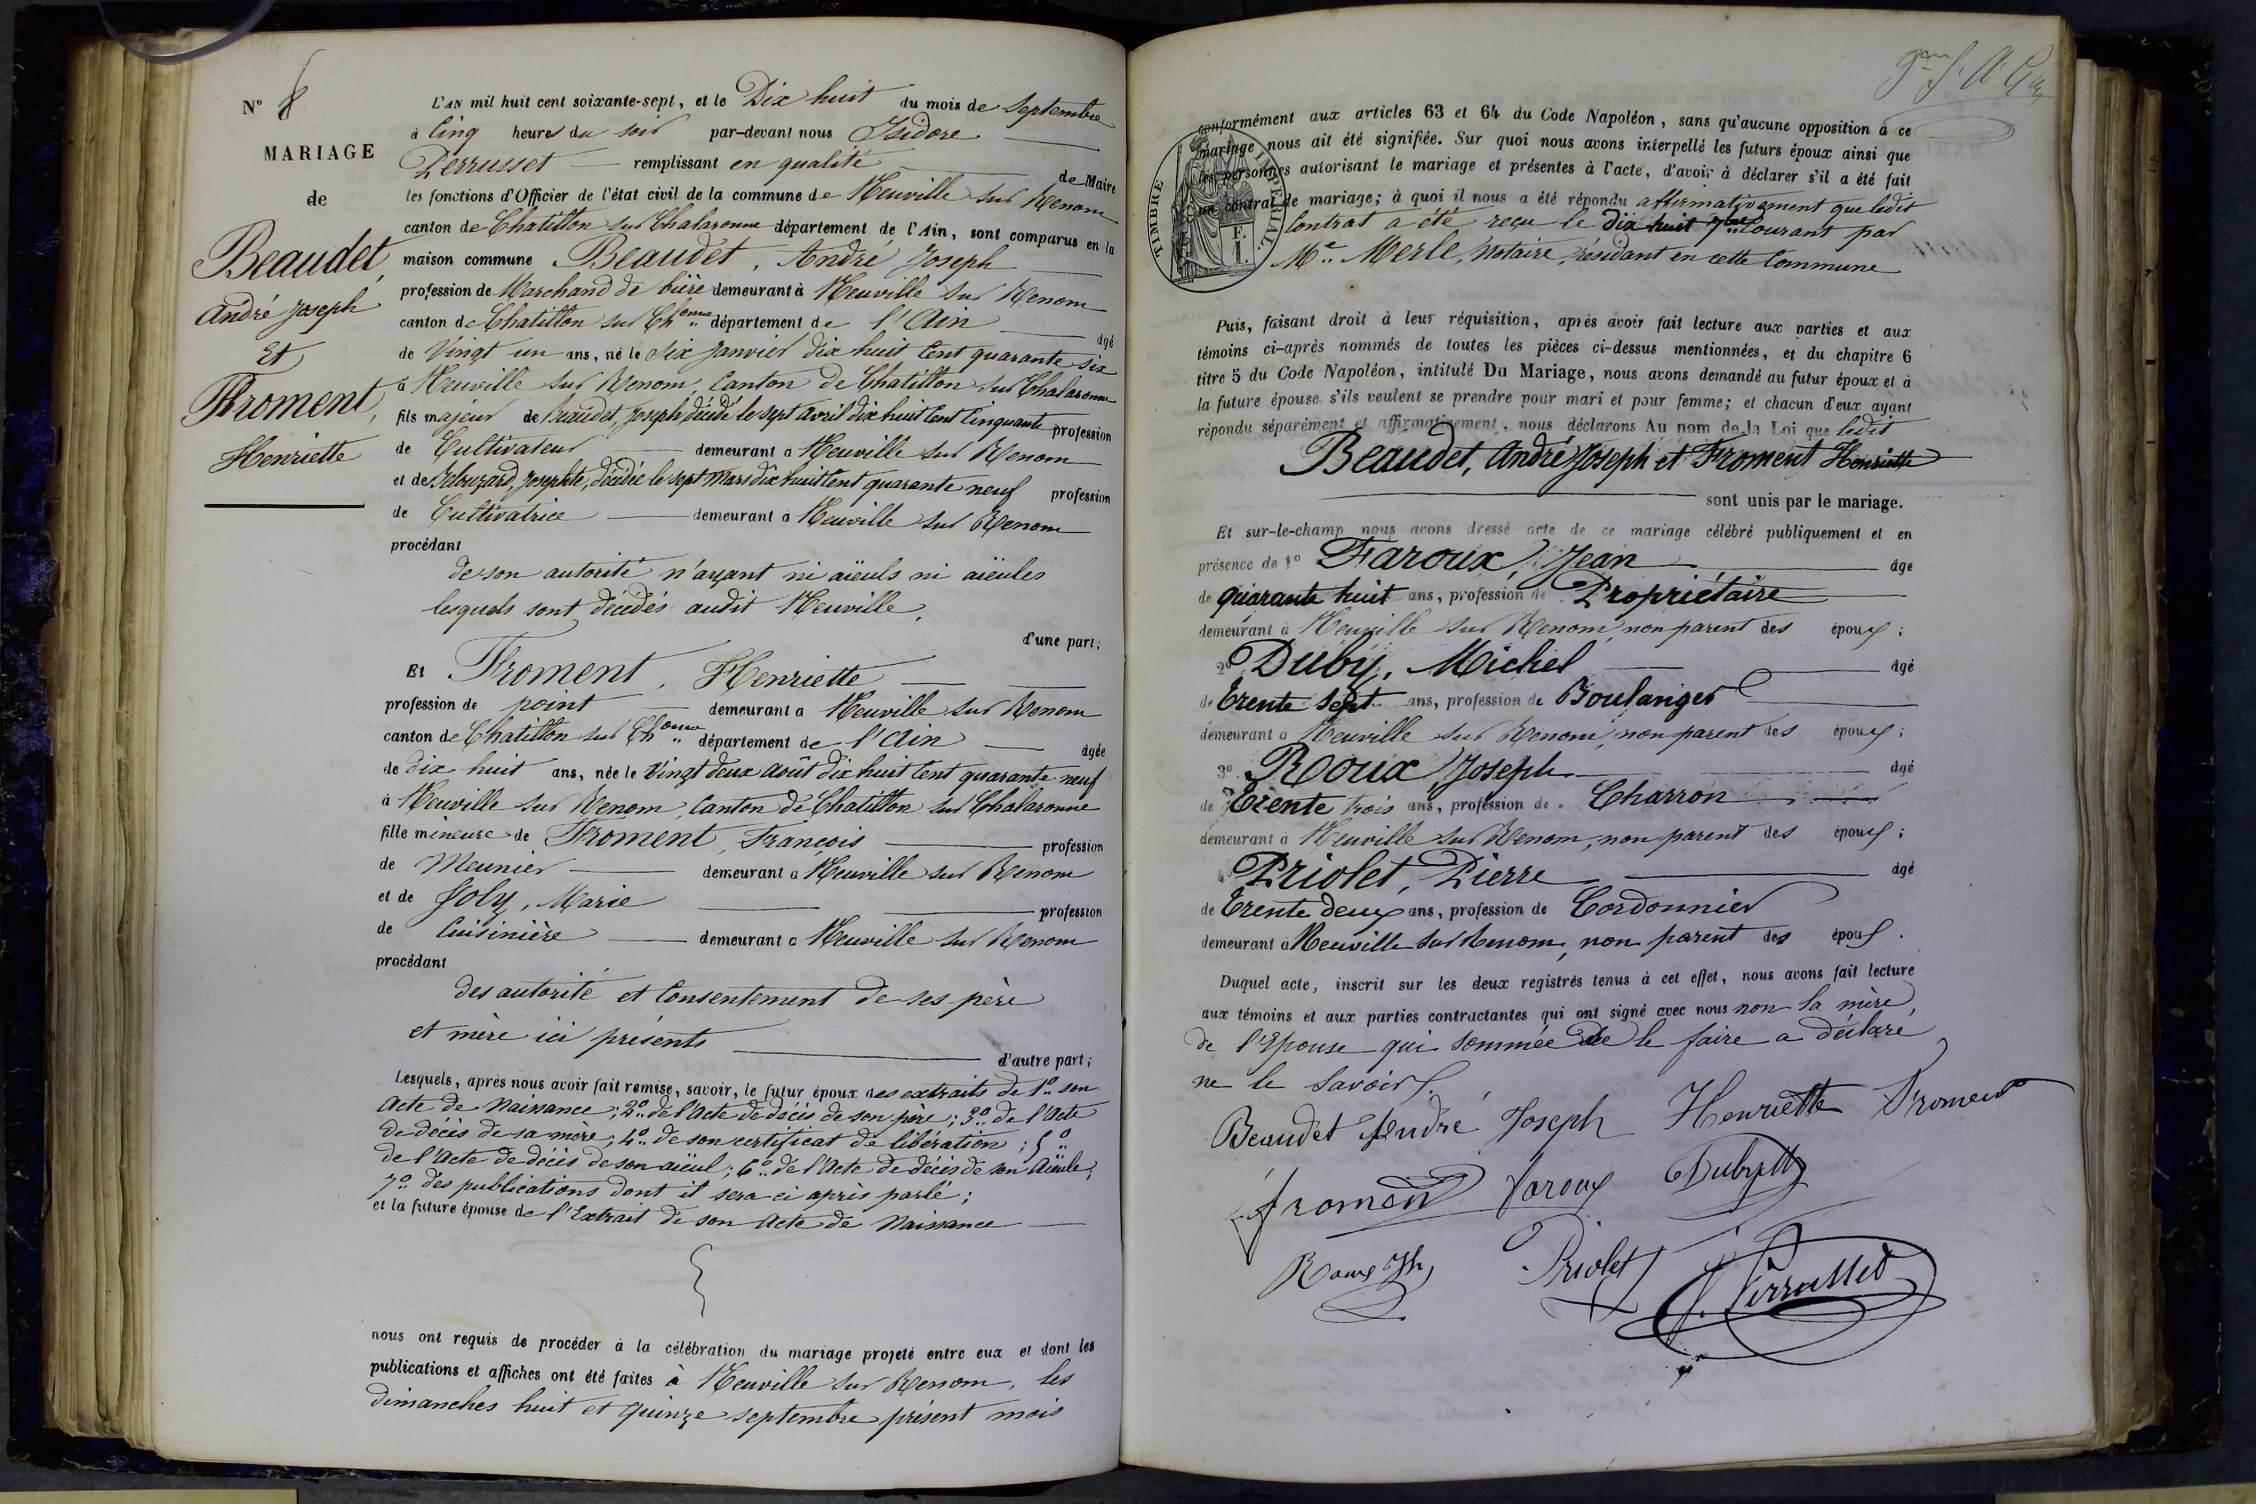 N° 8
MARIAGE
de
Beaudet,
André Joseph
Et
Froment,
Henriette
L'AN mil huit cent soixante-sept, et le Dix huit du mois de Septembre
à Cinq heures du soir par-devant nous Isidore
Perrusset remplissant en qualité de Maire
les fonctions d'Officier de l'état civil de la commune de Neuville sur Renom
canton de Chatillon sur Chalaronne département de l'Ain, sont comparus en la
maison commune Beaudet, André Joseph
profession de Marchand de bière demeurant à Neuville sur Renom
canton de Chatillon sur Chonne département de l'Ain âgé
de Vingt un ans, né le six Janvier dix huit Cent quarante six
à Neuville sur Renom, Canton de Chatillon sur Chalaronne
fils majeur de Beaudet, Joseph, décédé le sept avril dix huit Cent Cinquante profession
de Cultivateur demeurant à Neuville sur Renom
et de Josephte, décédée le sept Mars dix huit Cent quarante neuf profession
de Cultivatrice demeurant à Neuville sur Renom
procédant
de son autorité n'ayant ni aïeuls ni aïeules
lesquels sont décédés audit Neuville,
d'une part;
Et Froment, Henriette
profession de point demeurant à Neuville sur Renom
canton de Chatillon sur Chonne département de l'Ain âgée
de dix huit ans, née le Vingt deux août dix huit Cent quarante neuf
à Neuville sur Renom, Canton de Chatillon sur Chalaronne
fille mineure de Froment, François profession
de Meunier demeurant à Neuville sur Renom
et de Joly, Marie profession
de Cuisinière demeurant à Neuville sur Renom
procédant
des autorité et Consentement de ses père
et mère ici présents
d'autre part;
Lesquels, après nous avoir fait remise, savoir, le futur époux des extraits de 1° son
Acte de Naissance; 2° de l'Acte de décès de son père; 3° de l'Acte
de décès de sa mère; 4° de son certificat de libération; 5°
de l'Acte de décès de son aïeul; 6° de l'Acte de décès de son Aïeule;
7° des publications dont il sera ci après parlé;
et la future épouse de l'Extrait de son Acte de Naissance
nous ont requis de procéder à la célébration du mariage projeté entre eux et dont les
publications et affiches ont été faites à Neuville sur Renom, les
dimanches huit et quinze septembre présent mois
TIMBRE IMPERIAL
conformément aux articles 63 et 64 du Code Napoléon, sans qu'aucune opposition à ce
mariage nous ait été signifiée. Sur quoi nous avons interpellé les futurs époux ainsi que
les personnes autorisant le mariage et présentes à l'acte, d'avoir à déclarer s'il a été fait
un contrat de mariage; à quoi il nous a été répondu affirmativement que ledit
Contrat a été reçu le dix huit 7bre Courant par
Me Merle, Notaire, résidant en cette Commune
Puis, faisant droit à leur réquisition, après avoir fait lecture aux parties et aux
témoins ci-après nommés de toutes les pièces ci-dessus mentionnées, et du chapitre 6
titre 5 du Code Napoléon, intitulé Du Mariage, nous avons demandé au futur époux et à
la future épouse s'ils veulent se prendre pour mari et pour femme; et chacun d'eux ayant
répondu séparément et affirmativement, nous déclarons Au nom de la Loi que ledit
Beaudet, André Joseph et Froment Henriette
sont unis par le mariage.
Et sur-le-champ nous avons dressé acte de ce mariage célébré publiquement et en
présence de 1° Faroux, Jean âgé
de quarante huit ans, profession de Propriétaire
demeurant à Neuville sur Renom, non parent des époux;
2° Duby, Michel âgé
de Trente sept ans, profession de Boulanger
demeurant à Neuville sur Renom, non parent des époux;
3° Roux Joseph âgé
de Trente trois ans, profession de Charron
demeurant à Neuville sur Renom, non parent des époux;
4° Priolet, Pierre âgé
de Trente deux ans, profession de Cordonnier
demeurant à Neuville sur Renom, non parent des époux.
Duquel acte, inscrit sur les deux registres tenus à cet effet, nous avons fait lecture
aux témoins et aux parties contractantes qui ont signé avec nous non la mère
de l'Epouse qui sommée de le faire a déclaré
ne le savoir.
Beaudet André Joseph Henriette Froment
froment Faroux Duby
Roux Jh Priolet
I. Perrusset